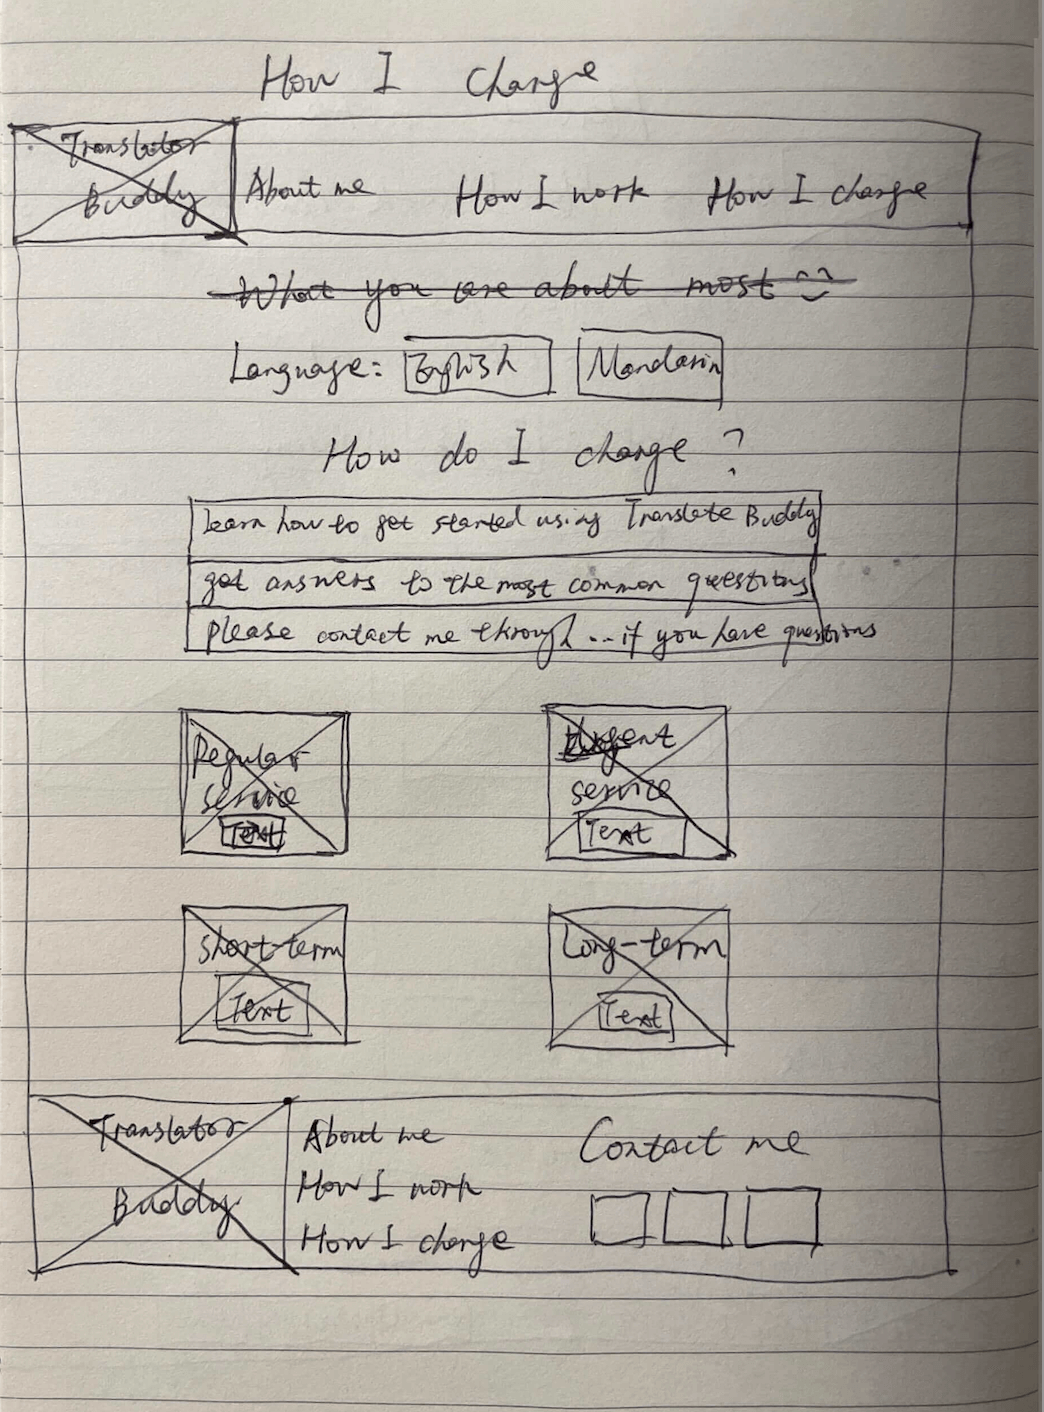 How I charge
Translator
Buddy
About me How I work How I charge
What you are about most
Language: English Mandarin
How do I charge ?
learn how to get started using Translate Buddy
get answers to the most common questions
please contact me through ... if you have questions
Regular
service
Text
Urgent
service
Text
Short-term
Text
Long-term
Text
Translator
Buddy
About me
How I work
How I charge
Contact me